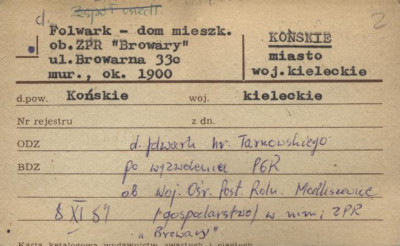 d. Zespół
Folwark - dom mieszk.
ob.ZPR "Browary"
ul.Browarna 33c
mur., ok. 1900
2
KOŃSKIE
miasto
woj.kieleckie
d.pow. Końskie woj. kieleckie
Nr rejestru z dn.
ODZ d. folwark hr. Tarnowskiego
BDZ po wyzwoleniu PGR
ob. Woj. Ośr. Post. Roln. Modliszewice
8 XI 59 /gospodarstwo/ w nim; ZPR
"Browary"
Karta katalogowa wydawnictw zwartych i ciągłych